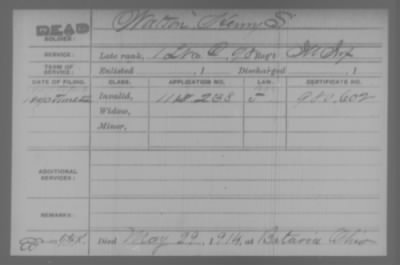 DEAD Watson Henry S.
SOLDIER:
SERVICE: Late rank, 1 Lt Co. D, 98 Reg't Ill. Inf.
TERM OF SERVICE: Enlisted , 1 Discharged , 1
DATE OF FILING. CLASS. APPLICATION NO. LAW. CERTIFICATE NO.
Invalid, 1142238 980.602
Widow,
Minor,
ADDITIONAL SERVICES:
REMARKS:
Died May 29, 1914, at Batavia Ohio